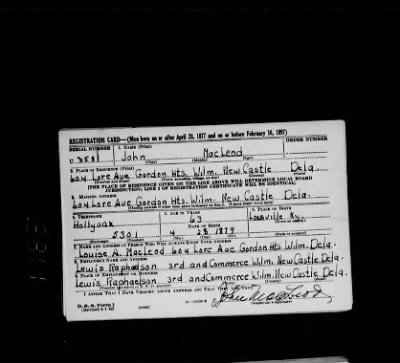 REGISTRATION CARD—(Men born on or after April 28, 1877 and on or before February 16, 1897)
SERIAL NUMBER 1. NAME (Print) ORDER NUMBER
U 3581 John MacLeod
2. PLACE OF RESIDENCE (Print)
604 Lore Ave Gordon Hts. Wilm. New Castle Dela.
[THE PLACE OF RESIDENCE GIVEN ON THE LINE ABOVE WILL DETERMINE LOCAL BOARD
JURISDICTION; LINE 2 OF REGISTRATION CERTIFICATE WILL BE IDENTICAL]
3. MAILING ADDRESS
604 Lore Ave Gordon Hts. Wilm. New Castle Dela.
4. TELEPHONE 5. AGE IN YEARS 6. PLACE OF BIRTH
Hollyoak 63 Louisville Ky.
DATE OF BIRTH
5301 4 28 1879
7. NAME AND ADDRESS OF PERSON WHO WILL ALWAYS KNOW YOUR ADDRESS
Louise A. MacLeod 604 Lore Ave Gordon Hts Wilm. Dela.
8. EMPLOYER'S NAME AND ADDRESS
Lewis Raphaelson 3rd and Commerce Wilm. New Castle Dela.
9. PLACE OF EMPLOYMENT OR BUSINESS
Lewis Raphaelson 3rd and Commerce Wilm. New Castle Dela.
I AFFIRM THAT I HAVE VERIFIED ABOVE ANSWERS AND THAT THEY ARE TRUE.
D. S. S. Form 1
John MacLeod